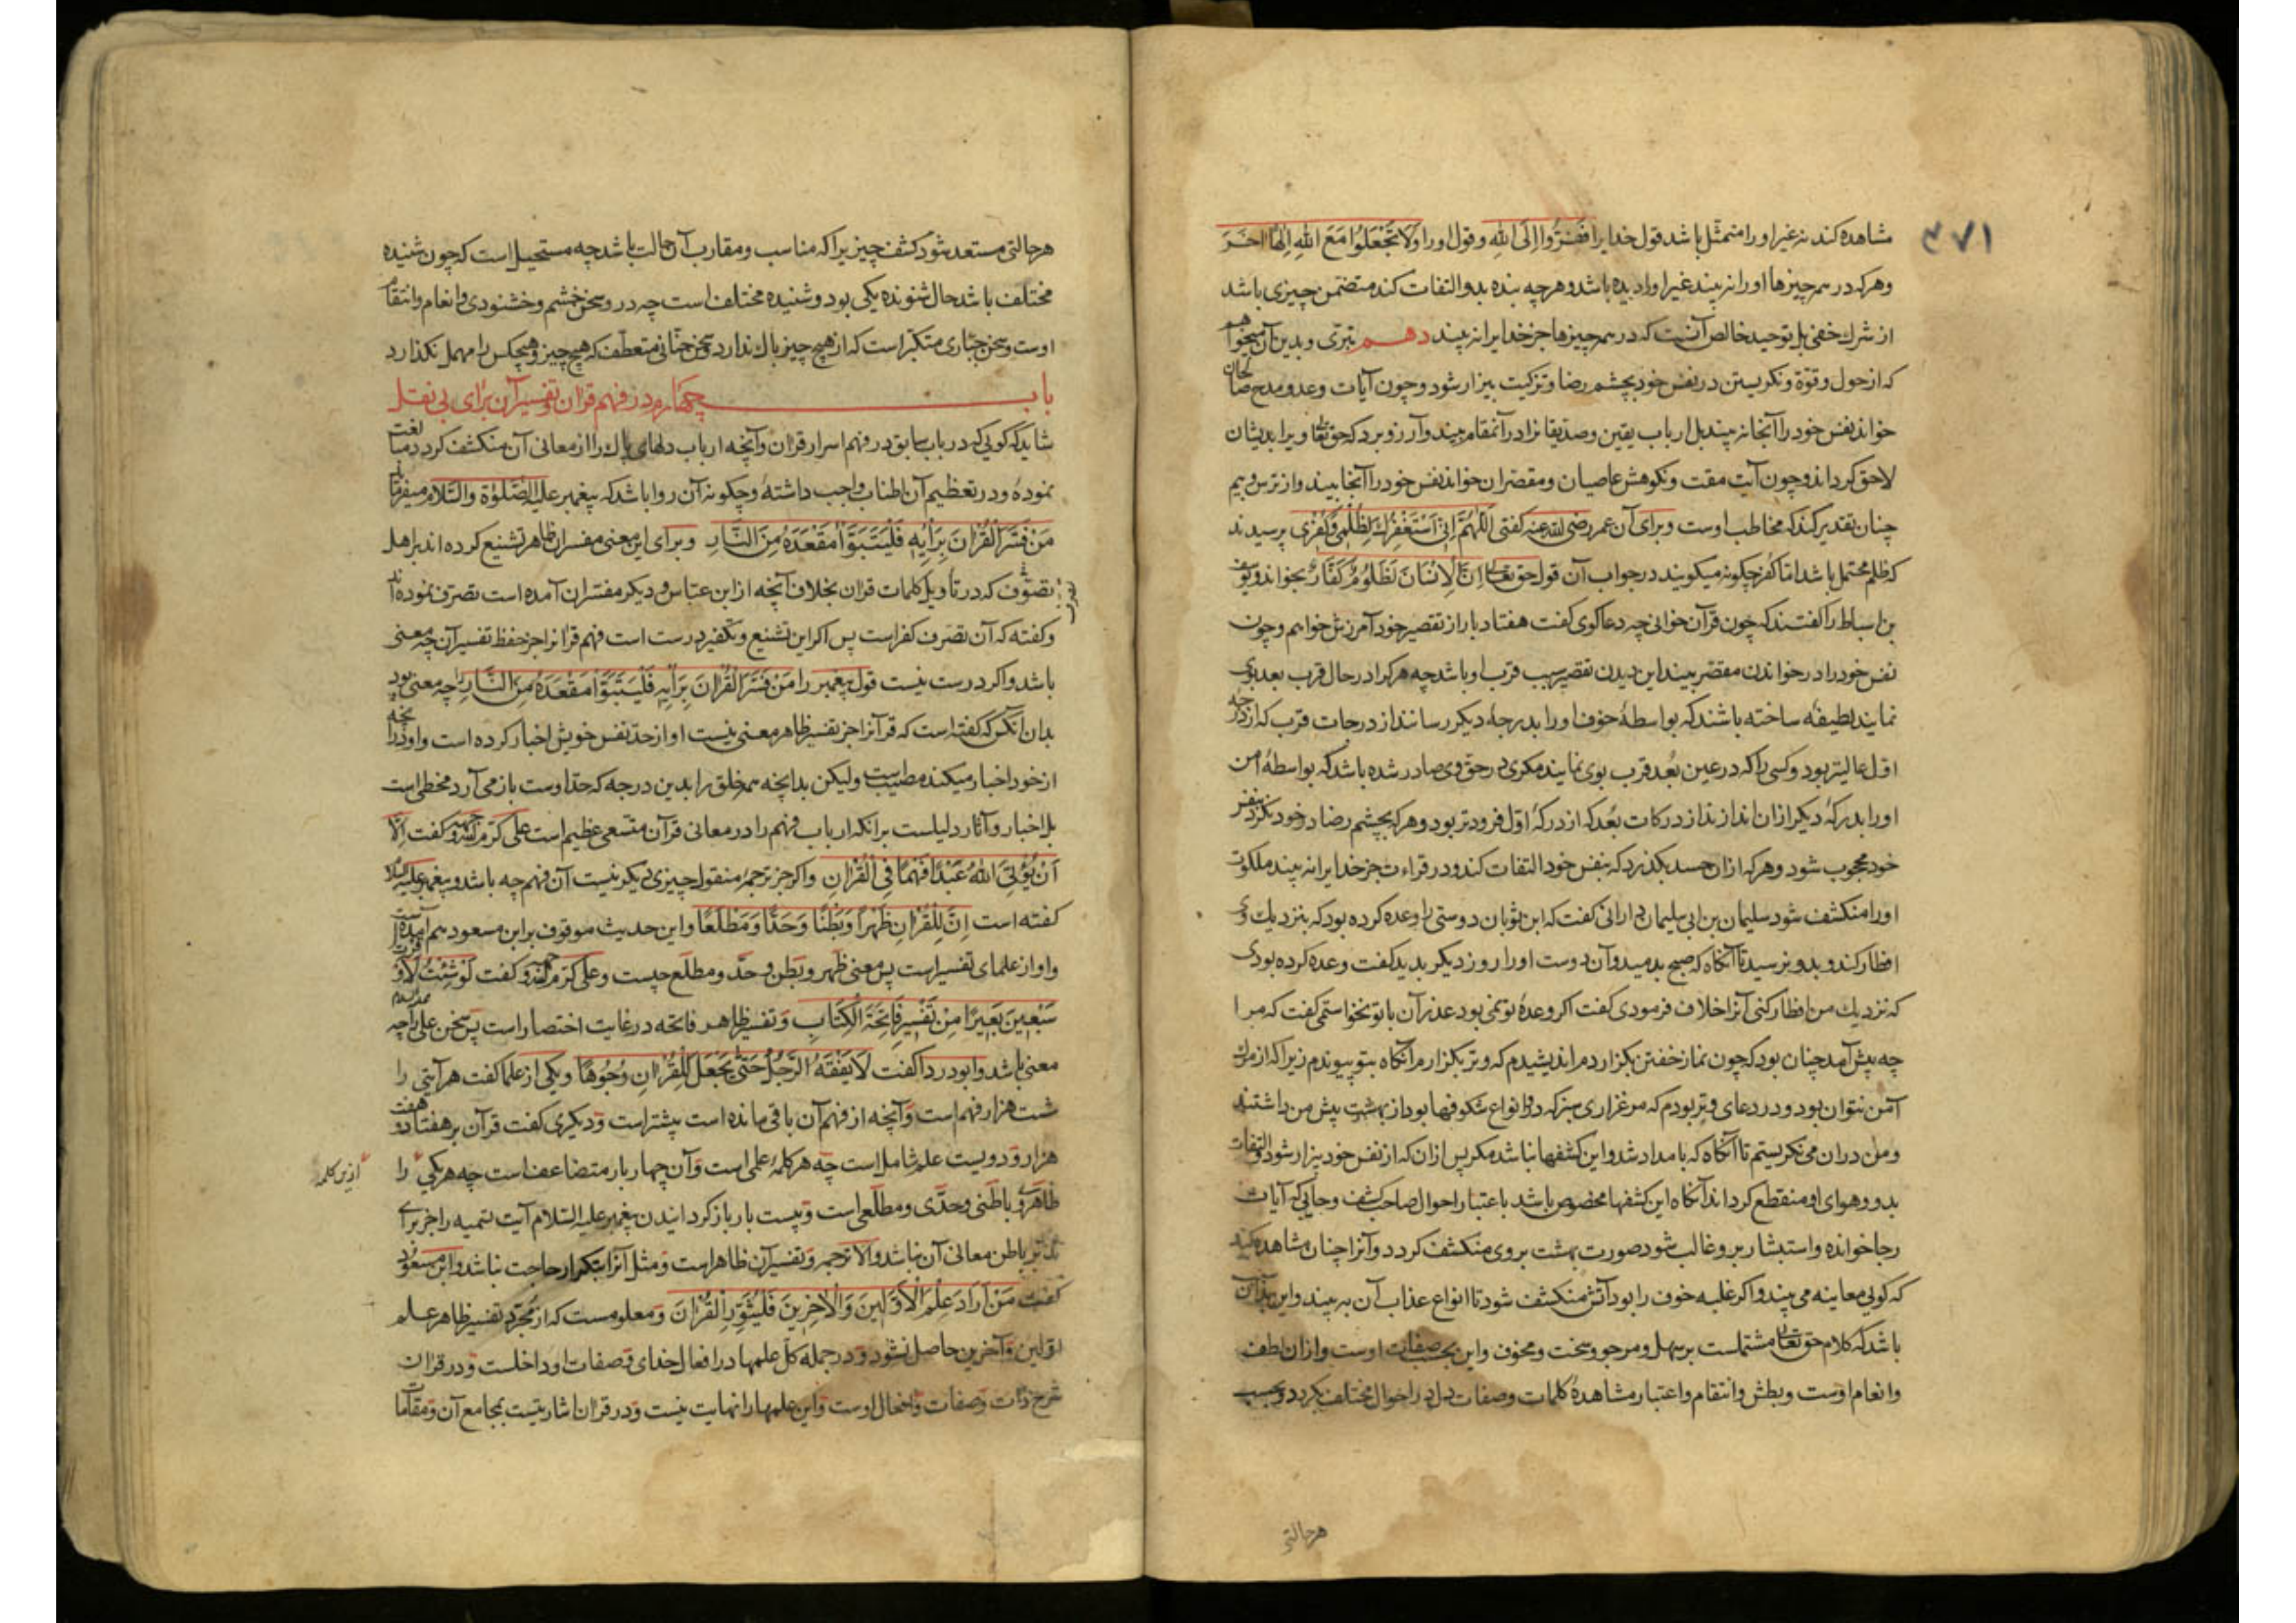 ۳۷۱
مشاهده کند نه غیر او را متمثل باشد قول خدایرا فَفِرُّوا إِلَى اللهِ و قول او را وَلَا تَجْعَلُوا مَعَ اللهِ إِلٰهًا آخَرَ
و هر که در همه چیزها او را نه بیند غیر او را دیده باشد و هر چه بنده بدو التفات کند متضمن چیزی باشد
از شرک خفی بل توحید خالص آنست که در همه چیزها جز خدایرا نه بیند دهم تبرّی و بدین آن میخواهم
که از حول و قوّة و نکریستن در نفس خود بچشم رضا و تزکیت بیزار شود و چون آیات وعد و مدح صالحان
خواند نفس خود را آنجا نه بیند بل ارباب یقین و صدیقانرا در آنمقام بیند و آرزو برد که حق تعالی ویرا بدیشان
لاحق کرداند و چون آیت مقت و نکوهش عاصیان و مقصران خواند نفس خود را آنجا بیند و از ترس و بیم
چنان تقدیر کند که مخاطب اوست و برای آن عمر رضی الله عنه کفتی اَللّٰهُمَّ اِنِّی اَسْتَغْفِرُكَ لِظُلْمِی وَکُفْرِی پرسیدند
که ظلم محتمل باشد اما کفر چکونه میکویند در جواب آن قول حق تعالی اِنَّ الْاِنْسَانَ لَظَلُومٌ کَفَّارٌ بخواند و یوسف
بن اسباط را کفتند که چون قرآن خوانی چه دعا کوی کفت هفتاد بار از تقصیر خود آمرزش خواهم و چون
نفس خود را در خواندن مقصّر بیند این دیدن تقصیر سبب قرب او باشد چه هر کرا در حال قرب بعد بوی
نمایند لطیفهٔ ساخته باشند که بواسطهٔ خوف او را بدرجهٔ دیکر رسانند از درجات قرب که از درجهٔ
اوّل عالیتر بود و کسی را که در عین بُعد قرب بوی نمایند مکری در حق وی صادر شده باشد که بواسطهٔ امن
او را بدرکهٔ دیکر ازان اندازند از درکات بعد که از درکهٔ اوّل فرودتر بود و هر که بچشم رضا در خود نکرد بنفس
خود محجوب شود و هر که ازان حسد بکذرد که بنفس خود التفات کند و در قراءت جز خدایرا نه بیند ملکوت
او را منکشف شود سلیمان بن ابی سلیمان دارانی کفت که ابن ثوبان دوستی را وعده کرده بود که بنزدیك وی
افطار کند و بدو نرسید تا آنکاه که صبح بدمید و آن دوست او را روز دیکر بدید کفت وعده کرده بودی
که نزدیك من افطار کنی آنرا خلاف فرمودی کفت اکر وعدهٔ تو نمی بود عذر آن با تو نخواستمی کفت که مرا
چه پیش آمد چنان بود که چون نماز خفتن بکزاردم اندیشیدم که وتر بکزارم آنکاه بتو پیوندم زیرا که از مرك
آمن نتوان بود و در دعای وتر بودم که مرغزاری سبز که درو انواع شکوفها بود از بهشت پیش من داشتند
و من دران می نکریستم تا آنکاه که بامداد شد و این کشفها نباشد مکر پس ازان که از نفس خود بیزار شود و التفات
بدو و هوای او منقطع کرداند آنکاه این کشفها مخصوص باشد باعتبار احوال صاحب کشف و جایی که آیات
رجا خوانده و استبشار برو غالب شود صورت بهشت بر وی منکشف کردد و آنرا چنان مشاهده کند
که کویی معاینه می بیند و اکر غلبه خوف را بود آتش منکشف شود تا انواع عذاب آن به بیند و این بدان
باشد که کلام حق تعالی مشتملست بر سهل و مرجو و سخت و مخوف و این بحسب صفات اوست و ازان لطف
و انعام اوست و بطش و انتقام و اعتبار مشاهدهٔ کلمات و صفات دل در احوال مختلف بکردد و بحسب
هر حالتی
هر حالتی مستعد شود کشف چیزیرا که مناسب و مقارب آن حالت باشد چه مستحیل است که چون شنیده
مختلف باشد حال شنونده یکی بود و شنیده مختلف است چه در و سخن خشم و خشنودی و انعام و انتقام
اوست و سخن جبّاری متکبّر است که از هیچ چیز باك ندارد و سخن حنّانی متعطّف که هیچ چیز و هیچکس را مهمل نکذارد
باب چهارم در فهم قرآن و تفسیر آن برای بی نقل
شاید که کویی که در باب سابق در فهم اسرار قرآن و آنچه ارباب دلهای پاك را از معانی آن منکشف کردد مبالغت
نمودهٔ و در تعظیم آن اطناب واجب داشتهٔ و چکونه آن روا باشد که پیغمبر علیه الصّلوٰة والسّلام میفرماید
مَنْ فَسَّرَ الْقُرْآنَ بِرَأْیِهِ فَلْیَتَبَوَّأْ مَقْعَدَهُ مِنَ النَّارِ و برای این معنی مفسران ظاهر تشنیع کرده اند بر اهل
تصوّف که در تأویل کلمات قرآن بخلاف آنچه از ابن عباس و دیکر مفسّران آمده است تصرّف نموده اند
و کفته که آن تصرف کفر است پس اکر این تشنیع و تکفیر درست است فهم قرآنرا جز حفظ تفسیر آن چه معنی
باشد و اکر درست نیست قول پیغمبر را مَنْ فَسَّرَ الْقُرْآنَ بِرَأْیِهِ فَلْیَتَبَوَّأْ مَقْعَدَهُ مِنَ النَّارِ چه معنی بود
بدان آنکس که کفته است که قرآنرا جز تفسیر ظاهر معنی نیست او از حدّ نفس خویش اخبار کرده است و او در آنچه
از خود اخبار میکند مصیبست ولیکن بدانچه همه خلق را بدین درجه که حدّ اوست باز می آرد مخطی است
بل اخبار و آثار دلیلست برانکه ارباب فهم را در معانی قرآن متّسعی عظیم است علی کرّم الله وجهه کفت اِلَّا
اَنْ یُؤْتِیَ اللهُ عَبْدًا فَهْمًا فِی الْقُرْآنِ و اکر جز ترجمهٔ منقول چیزی دیکر نیست آن فهم چه باشد و پیغمبر علیه السلام
کفته است اِنَّ لِلْقُرْآنِ ظَهْرًا وَبَطْنًا وَحَدًّا وَمَطْلَعًا و این حدیث موقوف بر ابن مسعود هم آمده است
و او از علمای تفسیر است پس معنی ظهر و بطن و حدّ و مطلع چیست و علی کرّم الله وجهه کفت لَوْ شِئْتُ لَاَوْقَرْتُ
سَبْعِینَ بَعِیرًا مِنْ تَفْسِیرِ فَاتِحَةِ الْکِتَابِ و تفسیر ظاهر فاتحه در غایت اختصار است پس سخن علی را چه
معنی باشد و ابو دردا کفت لَا یَفْقَهُ الرَّجُلُ حَتّٰى یَجْعَلَ لِلْقُرْآنِ وُجُوهًا و یکی از علما کفت هر آیتی را
شست هزار فهم است و آنچه از فهم آن باقی مانده است بیشتر است و دیکری کفت قرآن بر هفتاد و هفت
هزار و دویست علم شامل است چه هر کلمهٔ علمی است و آن چهار بار متضاعف است چه هر یکی را
ازین کلمه
ظاهری و باطنی و حدّی و مطلعی است و بیست بار باز کردانیدن پیغمبر علیه السلام آیت تسمیه را جز برای
تدبّر باطن معانی آن نباشد و الا ترجمه و تفسیر آن ظاهر است و مثل آنرا بتکرار حاجت نباشد و ابن مسعود
کفت مَنْ اَرَادَ عِلْمَ الْاَوَّلِینَ وَالْآخِرِینَ فَلْیُثَوِّرِ الْقُرْآنَ و معلومست که از مجرّد تفسیر ظاهر علم
اوّلین و آخرین حاصل نشود و در جمله کلّ علمها در افعال خدای و صفات او داخلست و در قرآن
شرح ذات و صفات و افعال اوست و این علمها را نهایت نیست و در قرآن اشارتیست بمجامع آن و مقامات